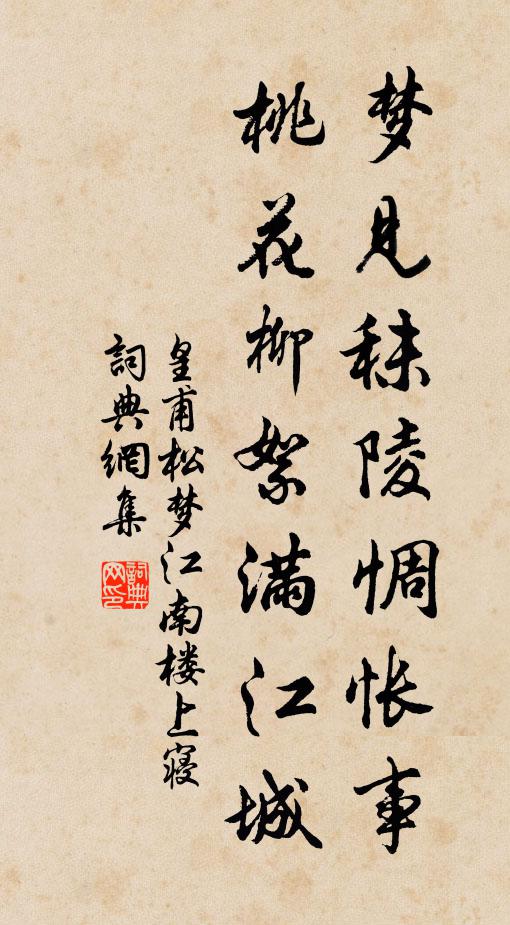 梦见秣陵惆怅事
桃花柳絮满江城
皇甫松梦江南楼上寝
詞典網集
詞典网印